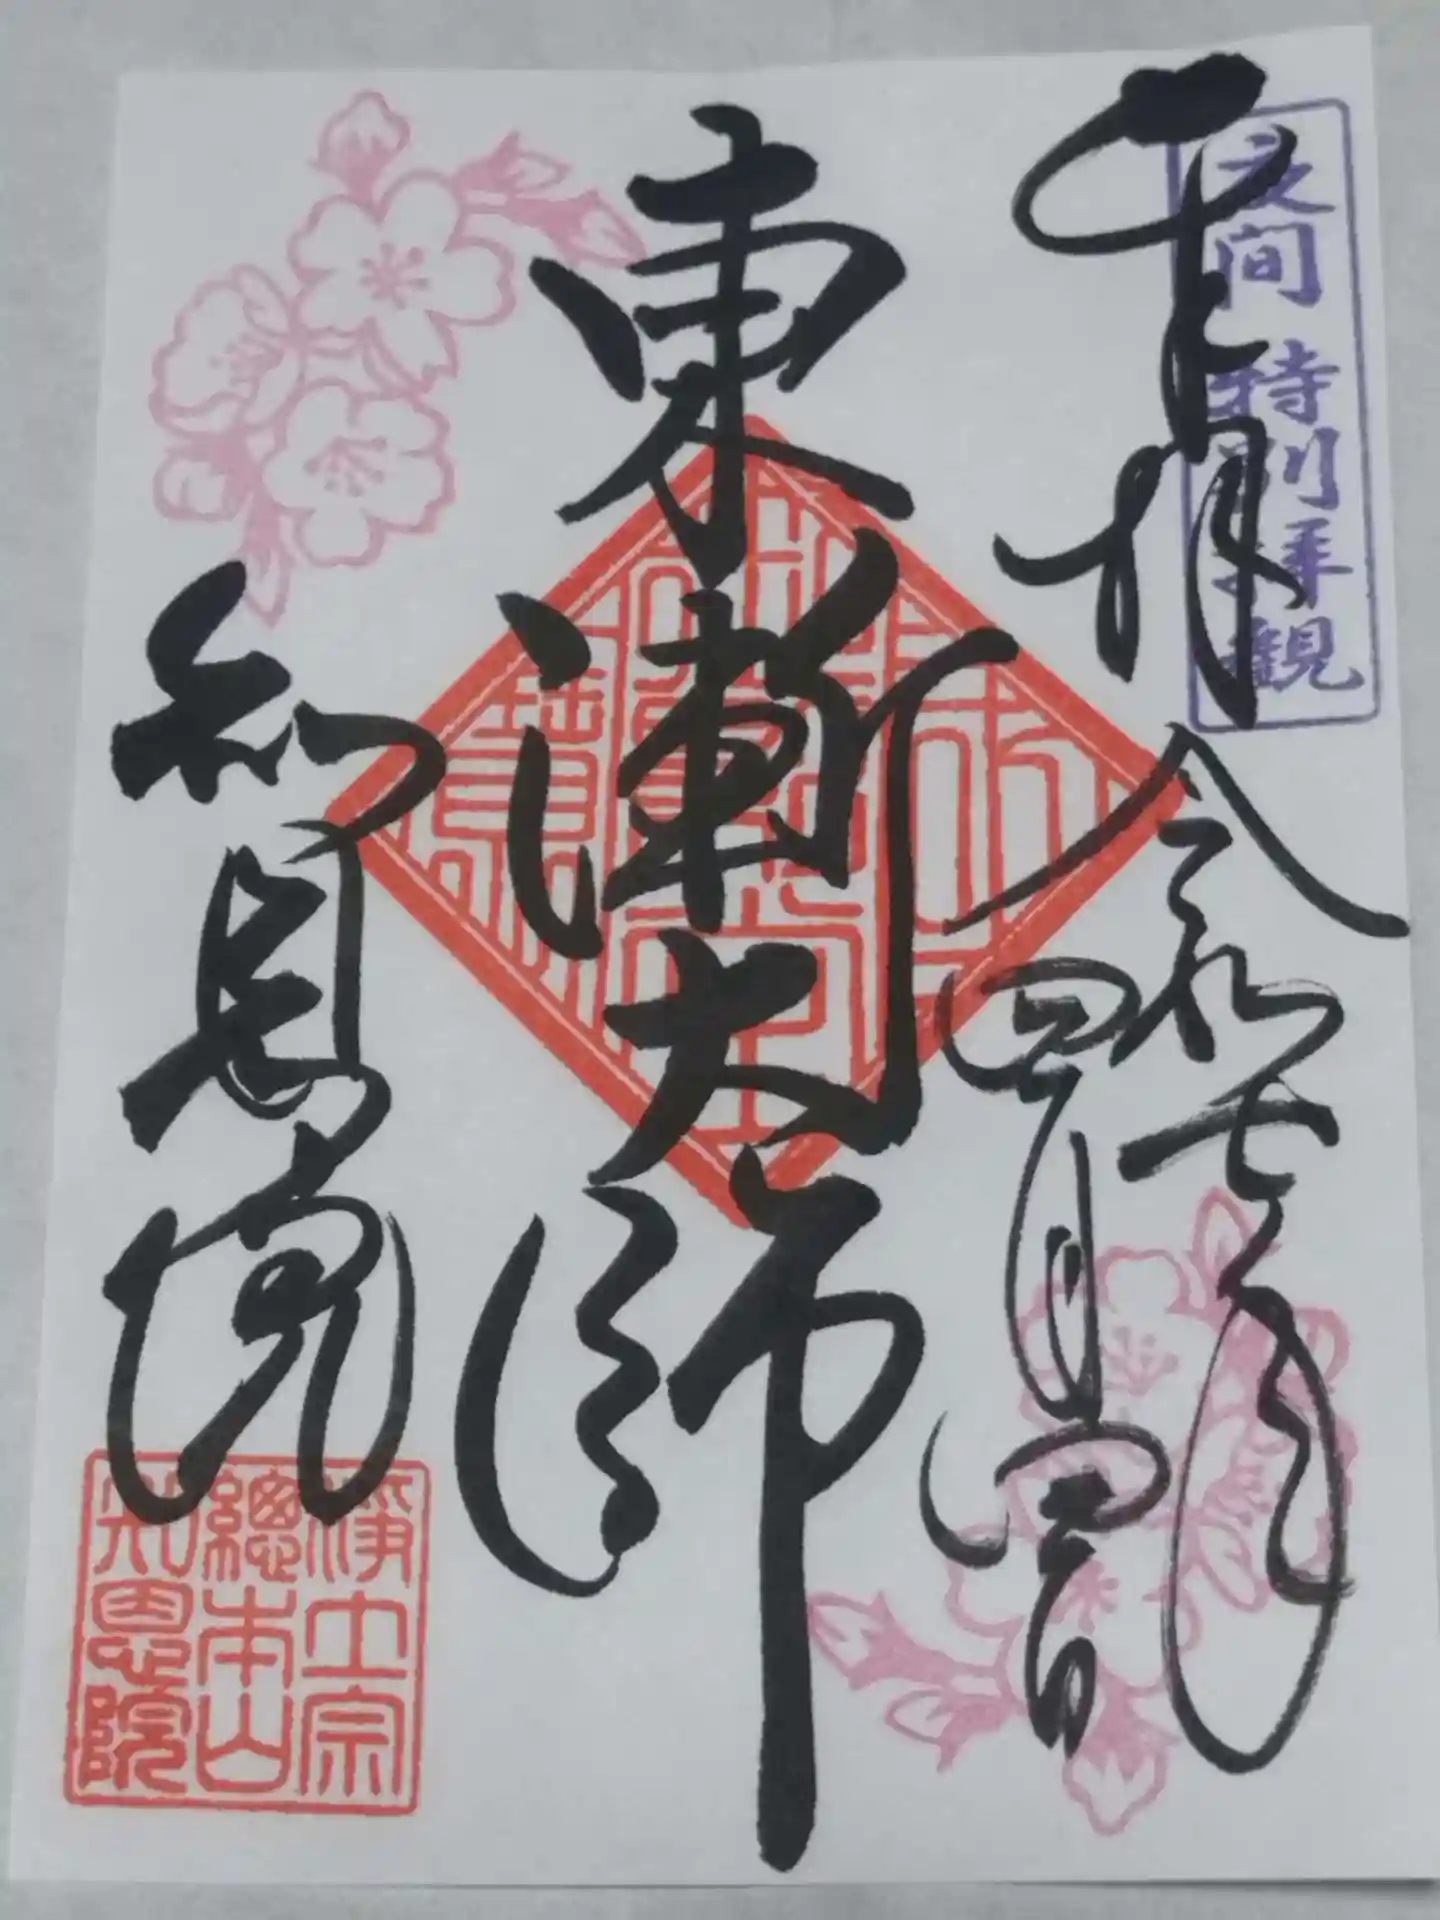 夜間 特別拝観
奉拝 令和七年
四月四日
東漸大師
知恩院
浄土宗
總本山
知恩院